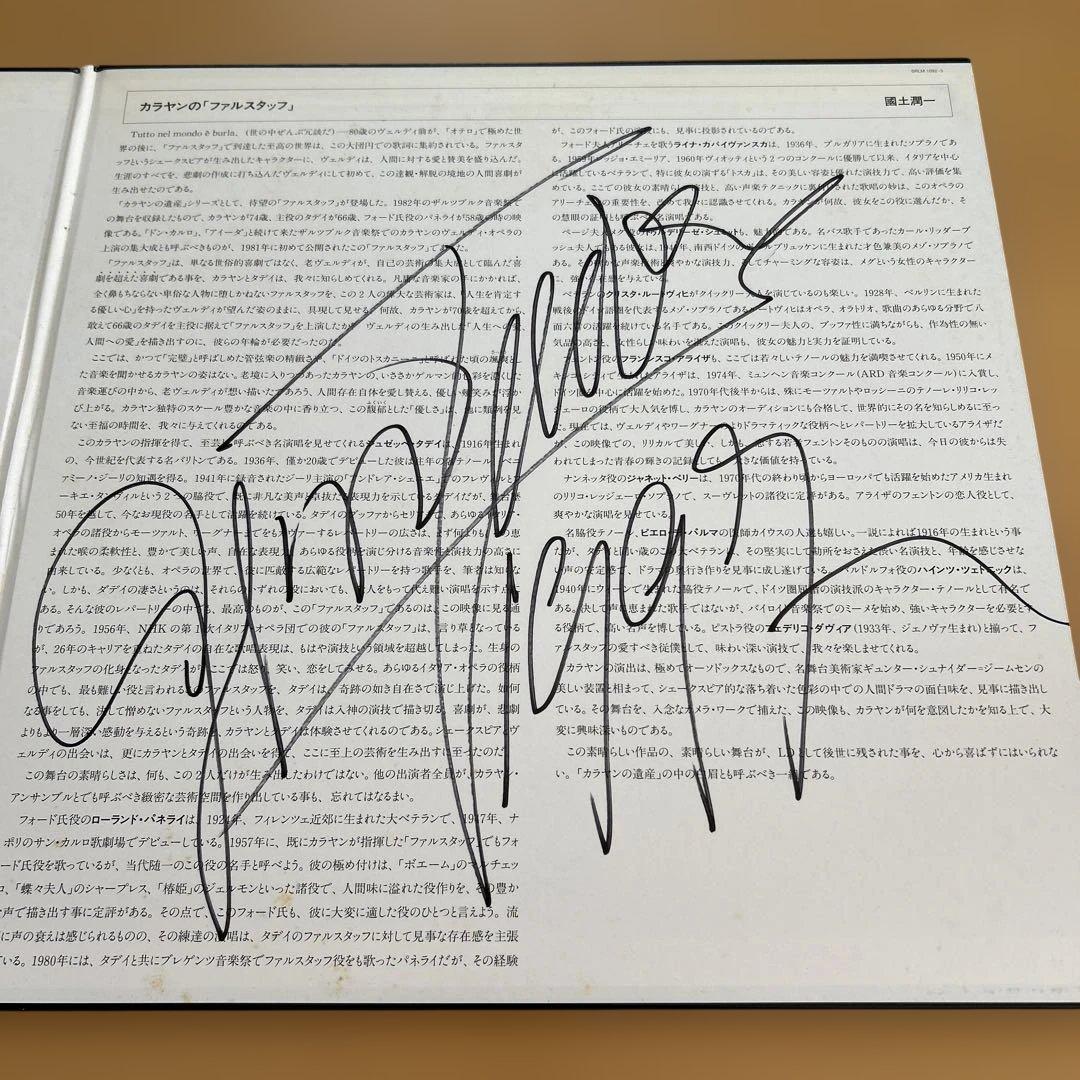 カラヤンの「ファルスタッフ」
國土潤一
Tutto nel mondo è burla.(世の中ぜんぶ冗談だ)―80歳のヴェルディ翁が、「オテロ」で極めた世
界の後に、「ファルスタッフ」で到達した至高の世界は、この大団円での歌詞に集約されている。ファルスタ
ッフというシェークスピアが生み出したキャラクターに、ヴェルディは、人間に対する愛と賛美を盛り込んだ。
生涯のすべてを、悲劇の作成に打ち込んだヴェルディにして初めて、この達観・解脱の境地の人間喜劇が
生み出せたのである。
「カラヤンの遺産」シリーズとして、待望の「ファルスタッフ」が登場した。1982年のザルツブルク音楽祭
の舞台を収録したもので、カラヤンが74歳、主役のタデイが66歳、フォード氏役のパネライが58歳の時の映
像である。「ドン・カルロ」、「アイーダ」と続けて来たザルツブルク音楽祭でのカラヤンのヴェルディ・オペラの
上演の集大成とも呼ぶべきものが、1981年に初めて公開されたこの「ファルスタッフ」であった。
「ファルスタッフ」は、単なる世俗的喜劇ではなく、老ヴェルディが、自己の芸術の集大成として臨んだ喜
劇を超えた喜劇である事を、カラヤンとタデイは、我々に知らしめてくれる。凡庸な音楽家の手にかかれば、
全く鼻もちならない卑俗な人物に堕しかねないファルスタッフを、この2人の偉大な芸術家は、「人生を肯定す
る優しい心」を持ったヴェルディが望んだ姿のままに、具現して見せる。何故、カラヤンが70歳を超えてから、
敢えて66歳のタデイを主役に据えて「ファルスタッフ」を上演したか。ヴェルディの生み出した「人生への愛、
人間への愛」を描き出すのに、彼らの年輪が必要だったのだ。
ここでは、かつて「完璧」と呼ばしめた管弦楽の精緻さや、「ドイツのトスカニーニ」と呼ばれた頃の颯爽とし
た音楽を聞かせるカラヤンの姿はない。老境に入りつつあったカラヤンの、いささかゲルマン的色彩を濃くした
音楽運びの中から、老ヴェルディが想い描いたであろう、人間存在自体を愛し賛える、優しい微笑みが浮か
び上がる。カラヤン独特のスケール豊かな音楽の中に香り立つ、この馥郁とした「優しさ」は、他に類例を見
ない至福の時間を、我々に与えてくれるのである。
このカラヤンの指揮を得て、至芸と呼ぶべき名演唱を見せてくれるジュゼッペ・タデイは、1916年生まれ
の、今世紀を代表する名バリトンである。1936年、僅か20歳でデビューした彼は、往年の名テノール・ベニ
アミーノ・ジーリの知遇を得る。1941年に録音されたジーリ主演の「アンドレア・シェニエ」でのフレヴィルとフ
ーキエ・タンヴィルという2つの脇役で、既に非凡な美声と卓抜な表現力を示しているタデイだが、以来
50年を通して、今なお現役の名手として活躍を続けている。タデイのブッファからセリアまで、あらゆるイタリア・
オペラの諸役からモーツァルト、ワーグナーまでをもカヴァーするレパートリーの広さは、まず何よりもその恵
まれた喉の柔軟性と、豊かで美しい声、自在な表現力、あらゆる役柄を演じ分ける音楽性と演技力の高さに
由来している。少なくとも、オペラの世界で、彼に匹敵する広範なレパートリーを持つ歌手を、筆者は知らな
い。しかも、タデイの凄さというのは、それらのいずれの役においても、余人をもって代え難い演唱を示す事
ある。そんな彼のレパートリーの中でも、最高のものが、この「ファルスタッフ」であるのは、この映像に見る通
りであろう。1956年、NHKの第1次イタリア・オペラ団での彼の「ファルスタッフ」は、言い草となっている
が、26年のキャリアを重ねたタデイの自在な歌唱表現は、もはや演技という領域を超越してしまった。生身の
ファルスタッフの化身となったタデイは、ここでは怒り、笑い、恋をしてみせる。あらゆるイタリア・オペラの役柄
の中でも、最も難しい役と言われるファルスタッフを、タデイは、奇跡の如き自在さで演じ上げた。如何
なる事をしても、決して憎めないファルスタッフという人物を、タデイは入神の演技で描き切る。喜劇が、悲劇
よりもより一層深い感動を与えるという奇跡を、カラヤンとタデイは体験させてくれるのである。シェークスピアとヴ
ェルディの出会いは、更にカラヤンとタデイの出会いを得て、ここに至上の芸術を生み出すに至ったのだ。
この舞台の素晴らしさは、何も、この2人だけが生み出したわけではない。他の出演者全員が、カラヤン・
アンサンブルとでも呼ぶべき緻密な芸術空間を作り出している事も、忘れてはなるまい。
フォード氏役のローランド・パネライは、1924年、フィレンツェ近郊に生まれた大ベテランで、1947年、ナ
ポリのサン・カルロ歌劇場でデビューしている。1957年に、既にカラヤンが指揮した「ファルスタッフ」でもフォ
ード氏役を歌っているが、当代随一のこの役の名手と呼べよう。彼の極め付けは、「ボエーム」のマルチェッ
ロ、「蝶々夫人」のシャープレス、「椿姫」のジェルモンといった諸役で、人間味に溢れた役作りを、その豊か
な声で描き出す事に定評がある。その点で、このフォード氏も、彼に大変に適した役のひとつと言えよう。流
に声の衰えは感じられるものの、その練達の演唱は、タデイのファルスタッフに対して見事な存在感を主張
ている。1980年には、タデイと共にブレゲンツ音楽祭でファルスタッフ役をも歌ったパネライだが、その経験
が、このフォード氏の演技にも、見事に投影されているのである。
フォード夫人アリーチェを歌うライナ・カバイヴァンスカは、1936年、ブルガリアに生まれたソプラノであ
る。1959年レッジョ・エミーリア、1960年ヴィオッティという2つのコンクールに優勝して以来、イタリアを中心
に活躍しているベテランで、特に彼女の演ずる「トスカ」は、その美しい容姿と優れた演技力で、高い評価を集
めている。ここでの彼女の素晴らしい演技と、高い声楽テクニックに裏付けされた歌唱の妙は、このオペラの
アリーチェ役の重要性を、改めて我々に認識させてくれる。カラヤンが何故、彼女をこの役に選んだか、そ
の慧眼の証明とも呼ぶべき名演唱である。
ページ夫人メグ役のトゥルデリーゼ・シュミットも、魅力的である。名バス歌手であったカール・リッダーブ
ッシュ夫人でもある彼女は、1941年、南西ドイツのザールブリュッケンに生まれた才色兼美のメゾ・ソプラノで
ある。その確かな声楽技術と爽やかな演技力、そしてチャーミングな容姿は、メグという女性のキャラクター
に、強い存在を与えている。
ベテランのクリスタ・ルートヴィヒがクイックリー夫人を演じているのも楽しい。1928年、ベルリンに生まれた
戦後のドイツ語圏を代表するメゾ・ソプラノであるルートヴィヒはオペラ、オラトリオ、歌曲のあらゆる分野で八
面六臂の活躍を続けている名手である。このクイックリー夫人の、ブッファ性に満ちながらも、作為性の無い
気品の高さと、女性らしい味わいを湛えた演唱も、彼女の魅力と実力を証明している。
フェントン役のフランシスコ・アライザも、ここでは若々しいテノールの魅力を満喫させてくれる。1950年にメ
キシコで生まれたアライザは、1974年、ミュンヘン音楽コンクール(ARD音楽コンクール)に入賞し、
ドイツ圏を中心に活躍を始めた。1970年代後半からは、殊にモーツァルトやロッシーニのテノーレ・リリコ・レッ
ジェーロの役柄で大人気を博し、カラヤンのオーディションにも合格して、世界的にその名を知らしめるに至っ
た。現在では、ヴェルディやワーグナーよりドラマティックな役柄へとレパートリーを拡大しているアライザだ
が、この映像での、リリカルで美しく、しかも、恋する若者フェントンそのものの演唱は、今日の彼からは失
われてしまった青春の輝きの記録としても、大きな価値を持っている。
ナンネッタ役のジャネット・ペリーは、1970年代の終わり頃からヨーロッパでも活躍を始めたアメリカ生まれ
のリリコ・レッジェーロ・ソプラノで、スーヴレットの諸役に定評がある。アライザのフェントンの恋人役として、
爽やかな演唱を見せている。
名脇役テノール、ピエロ・デ・パルマの医師カイウスの人選も嬉しい。一説によれば1916年の生まれという事
だが、タデイと同い歳のこのベテランが、その堅実にして勘所をおさえた渋い名演技と、年齢を感じさせな
い声の安定感で、ドラマの奥行き作りを見事に成し遂げている。バルドルフォ役のハインツ・ツェドニックは、
1940年にウィーンで生まれた脇役テノールで、ドイツ圏屈指の演技派のキャラクター・テノールとして有名で
ある。決して声に恵まれた歌手ではないが、バイロイト音楽祭でのミーメを始め、強いキャラクターを必要とす
る役柄で、高い名声を博している。ピストラ役のフェデリコ・ダヴィア(1933年、ジェノヴァ生まれ)と揃って、フ
ァルスタッフの愛すべき従僕として、味わい深い演技で、我々を楽しませてくれる。
カラヤンの演出は、極めてオーソドックスなもので、名舞台美術家ギュンター・シュナイダー=ジームセンの
美しい装置と相まって、シェークスピア的な落ち着いた色彩の中での人間ドラマの面白味を、見事に描き出し
ている。その舞台を、入念なカメラ・ワークで捕えた、この映像も、カラヤンが何を意図したかを知る上で、大
変に興味深いものである。
この素晴らしい作品の、素晴らしい舞台が、LDとして後世に残された事を、心から喜ばずにはいられな
い。「カラヤンの遺産」の中の白眉とも呼ぶべき一組である。